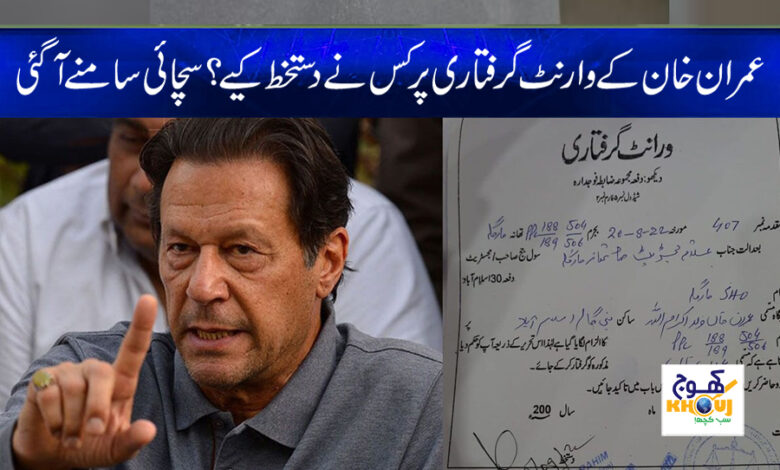 عمران خان کے وارنٹ گرفتاری پر کس نے دستخط کیے؟ سچائی سامنے آ گئی
ورانٹ گرفتاری
دیکھو: دفعہ مجموعہ ضابطہ فوجدارہ
مقدمہ نمبر 407 مورخہ 20-8-22 بجرم PPC 188 504 189 506 تھانہ مارگلہ
بعدالت جناب سول جج صاحب / مجسٹریٹ
دفعہ 30 اسلام آباد
SHO مارگلہ
عمران خان ولد اکرام اللہ ساکن بنی گالہ اسلام آباد پر
PPC 188 504 189 506 کا الزام لگایا گیا ہے لہذا اس تحریر کے ذریعہ آپ کو حکم دیا
جاتا ہے کہ مذکورہ کو گرفتار کر کے
حاضر کریں باب میں تاکید جانیں۔
ماہ سال 200
کھوج
KHOUJ
سب کچھ!
RAHIM